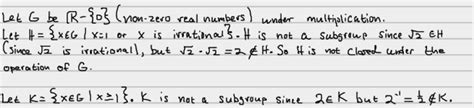 Let G be ℝ-{0} (non-zero real numbers) under multiplication.
Let H = {x∈G | x=1 or x is irrational}. H is not a subgroup since √2 ∈ H
(since √2 is irrational), but √2·√2 = 2 ∉ H. So H is not closed under the
operation of G.
Let K = {x∈G | x≥1}. K is not a subgroup since 2∈K but 2⁻¹ = ½ ∉ K.